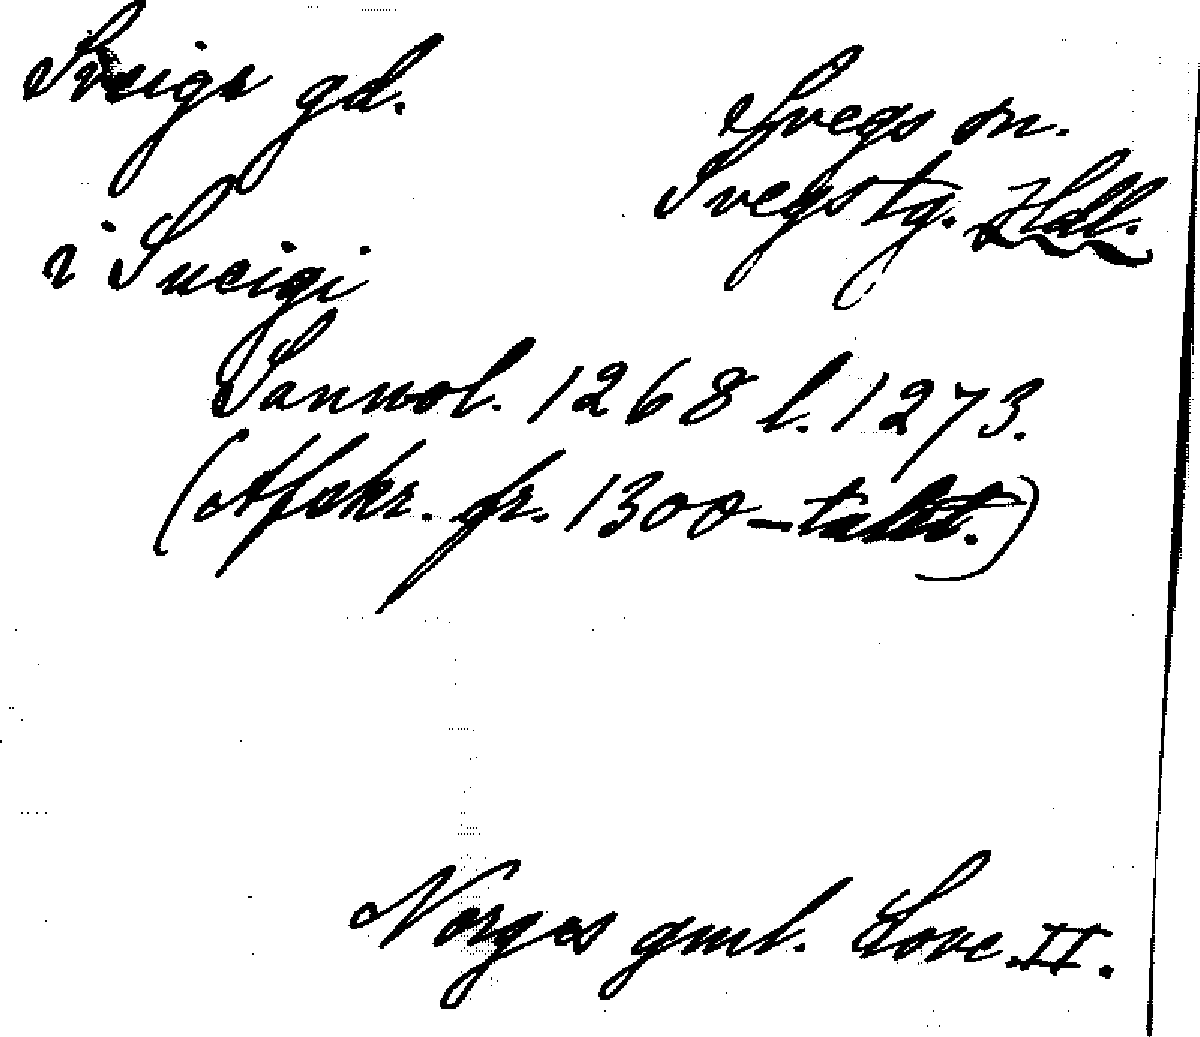 Sveigs gd.
Svegs sn.
Svegs tg. Hdl.
i Sveigi
Sannol. 1268 l. 1273.
(Afskr. fr. 1300-talet.)
Norges gml. Love. II.